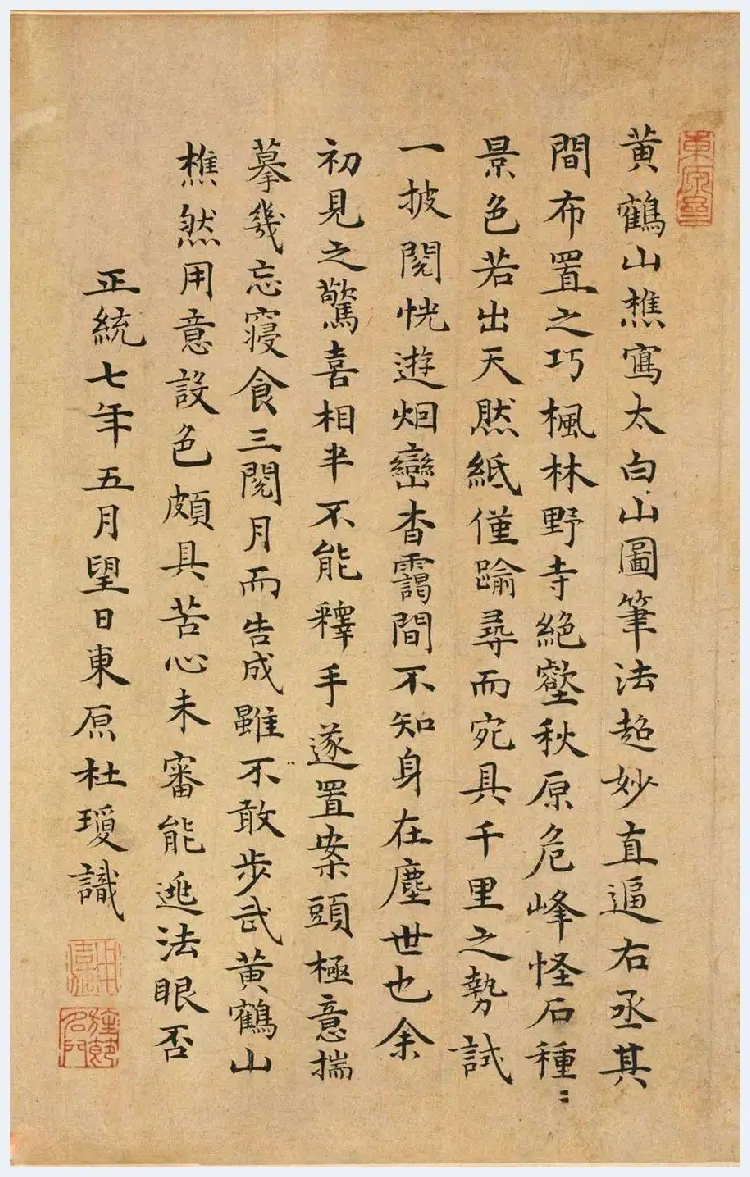 黄鶴山樵寫太白山圖筆法超妙直逼右丞其
間布置之巧楓林野寺絶壑秋原危峰怪石種〻
景色若出天然紙僅踰尋而宛具千里之勢試
一披閱恍遊烟巒杳靄間不知身在塵世也余
初見之驚喜相半不能釋手遂置案頭極意揣
摹幾忘寢食三閱月而告成雖不敢步武黄鶴山
樵然用意設色頗具苦心未審能逃法眼否
正統七年五月望日東原杜瓊識